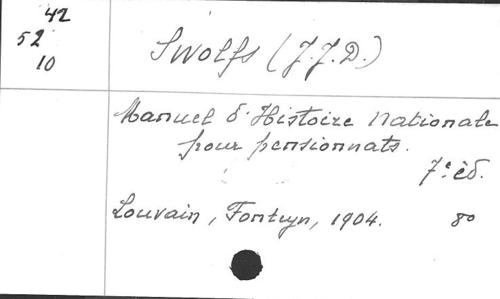 42
52
10
Swolfs (J.J.D.)
Manuel d'Histoire Nationale
pour pensionnats.
7e éd.
Louvain, Fonteyn, 1904. 8o